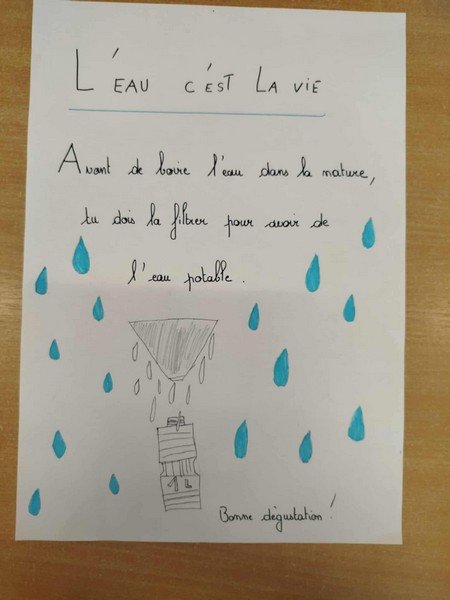 L'EAU C'EST LA VIE
Avant de boire l'eau dans la nature,
tu dois la filtrer pour avoir de
l'eau potable.
1L
Bonne dégustation !